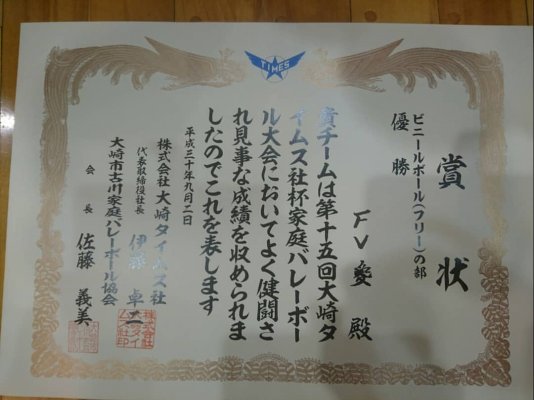 TIMES
賞状
ビニールボール(フリー)の部
優勝
FV愛 殿
貴チームは第十五回大崎タ
イムス社杯家庭バレーボー
ル大会においてよく健闘さ
れ見事な成績を収められま
したのでこれを表します
平成三十年九月二日
株式会社 大崎タイムス社
代表取締役社長 伊藤 卓二
大崎市古川家庭バレーボール協会
会長 佐藤 義美